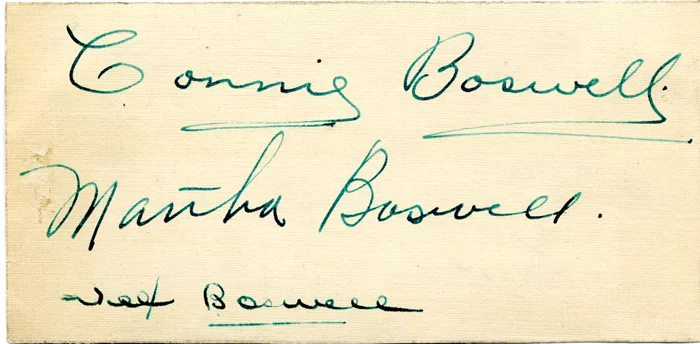 Connie Boswell.
Martha Boswell.
Vet Boswell